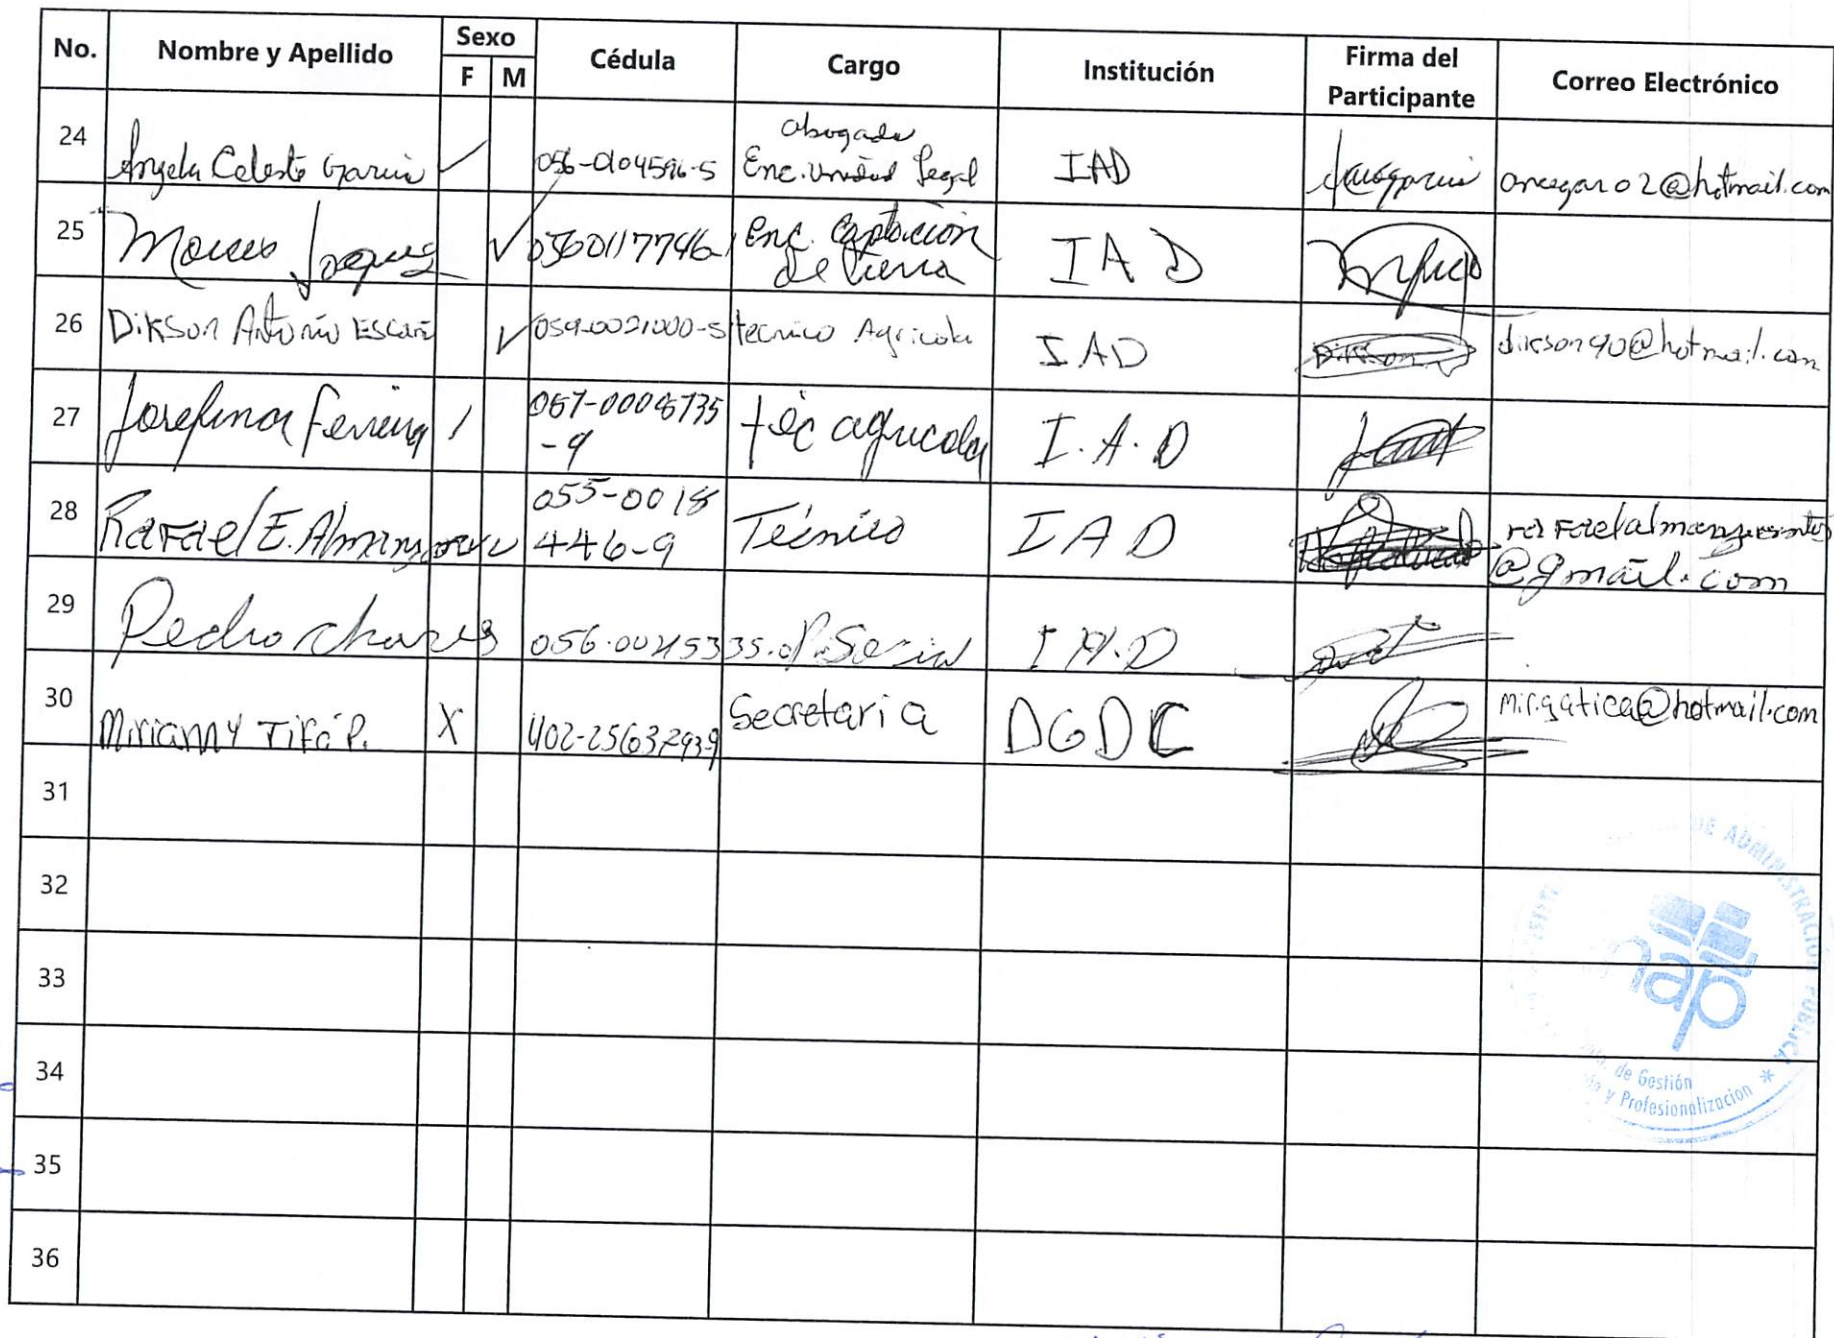 No. Nombre y Apellido Sexo Cédula Cargo Institución Firma del Participante Correo Electrónico
F M
24 Angela Celeste Garcia ✓ 056-0104596-5 abogada Enc. Unidad Legal IAD ancegar02@hotmail.com
25 Moises ✓ 05601177461 Enc. Captacion de tierra IAD
26 Dikson Antonio Escaño ✓ 059-0021000-5 tecnico Agricola IAD Dikson dikson40@hotmail.com
27 Josefina Ferreira / 057-0008735-9 téc agricola I.A.D
28 Rafael E. Almanzar ✓ 055-0018446-9 Técnico IAD @gmail.com
29 Pedro Chaves P. Social I.A.D
30 Miriam Y Tifá P. X 402-2563293-9 Secretaria DGDC mir.gatica@hotmail.com
31
32
33
34
35
36
DE ADMINISTRACIÓN PÚBLICA
ap
de Gestión
y Profesionalización *